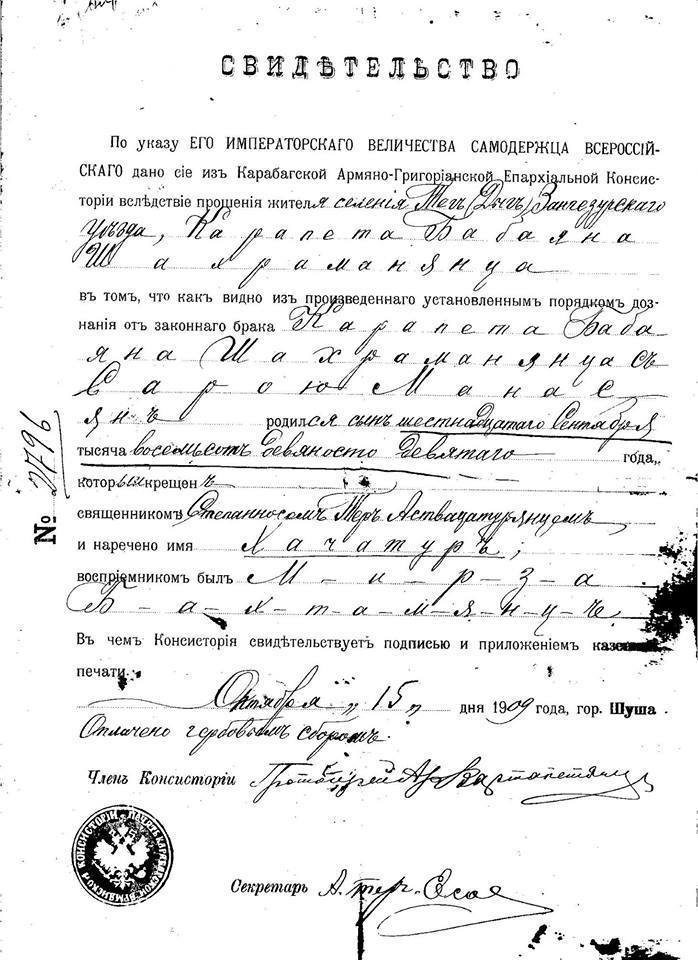 СВИДѢТЕЛЬСТВО
По указу ЕГО ИМПЕРАТОРСКАГО ВЕЛИЧЕСТВА САМОДЕРЖЦА ВСЕРОССІЙ-
СКАГО дано сіе изъ Карабагской Армяно-Григоріанской Епархіальной Консис-
торіи вслѣдствіе прошенія жителя селенія Тегъ (Дыгъ) Зангезурскаго
уѣзда, Карапета Бабаяна
Шахраманянца
въ томъ, что какъ видно изъ произведеннаго установленнымъ порядкомъ доз-
нанія отъ законнаго брака Карапета Баба-
яна Шахраманянца съ
Сарою Манас
янъ родился сынъ шестнадцатаго Сентября
тысяча восемьсотъ девяносто девятаго года,
который крещенъ
священникомъ Степанносомъ Теръ Аствацатурянцемъ
и наречено имя Хачатуръ,
воспріемникомъ былъ Мирза
Бахтамянцъ.
Въ чемъ Консисторія свидѣтельствуетъ подписью и приложеніемъ казенной
печати.
Октября "15" дня 1909 года, гор. Шуша.
Оплачено гербовымъ сборомъ.
Членъ Консисторіи Протоіерей Вартапетянц
Секретарь А. Тер-
№ 2796